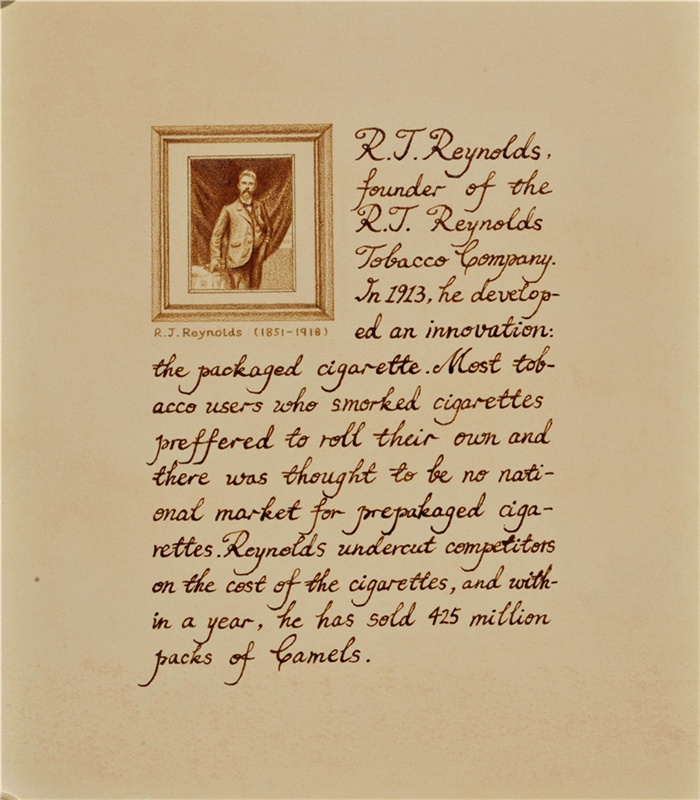 R.J. Reynolds,
founder of the
R.J. Reynolds
Tobacco Company.
In 1913, he develop-
R.J. Reynolds (1851-1918)
ed an innovation:
the packaged cigarette. Most tob-
acco users who smorked cigarettes
preffered to roll their own and
there was thought to be no nati-
onal market for prepakaged ciga-
rettes. Reynolds undercut competitors
on the cost of the cigarettes, and with-
in a year, he has sold 425 million
packs of Camels.